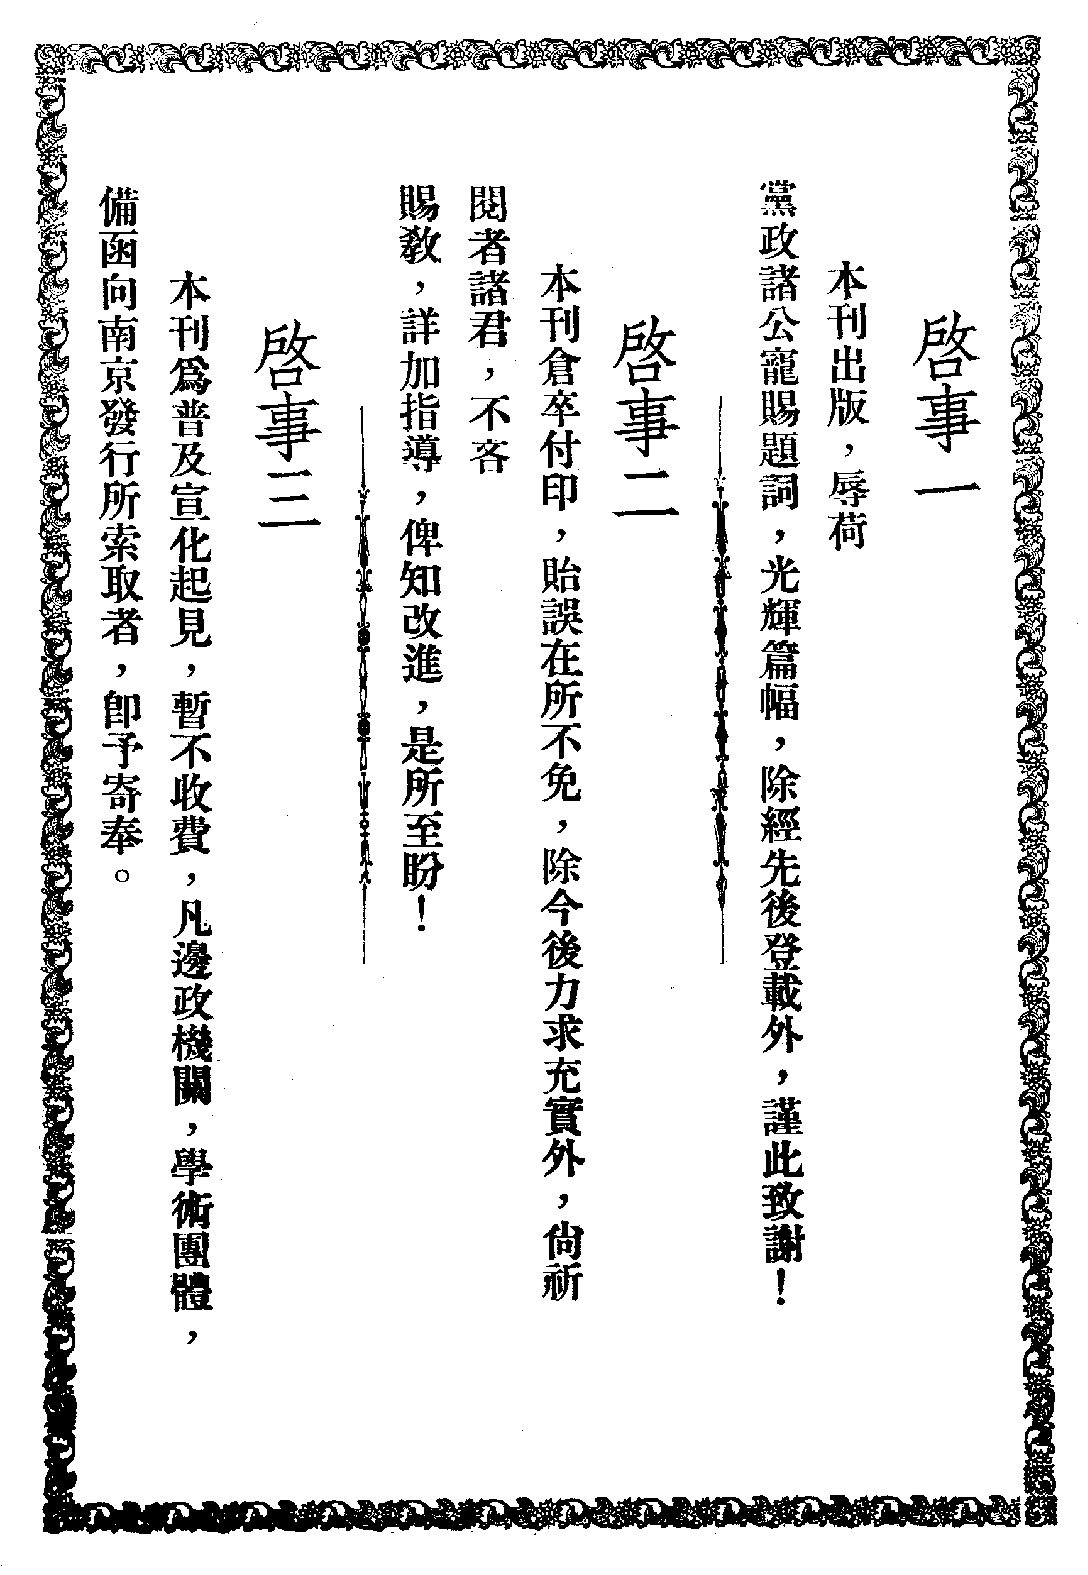 啓事一
本刊出版，辱荷
黨政諸公寵賜題詞，光輝篇幅，除經先後登載外，謹此致謝！
啓事二
本刊倉卒付印，貽誤在所不免，除今後力求充實外，尙祈
閱者諸君，不吝
賜敎，詳加指導，俾知改進，是所至盼！
啓事三
本刊爲普及宣化起見，暫不收費，凡邊政機關，學術團體，
備函向南京發行所索取者，卽予寄奉。